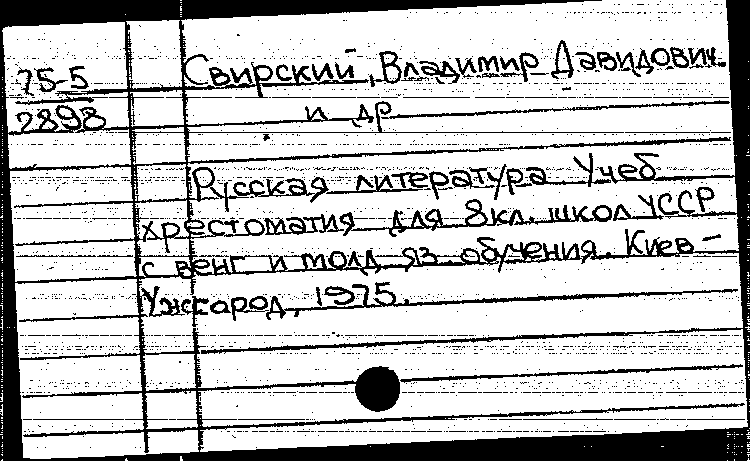 75-5
2898
Свирский, Владимир Давидович
и др
Русская литература Учеб
хрестоматия для 8 кл. школ УССР
с венг и молд яз. обучения. Киев -
Ужгород, 1975.